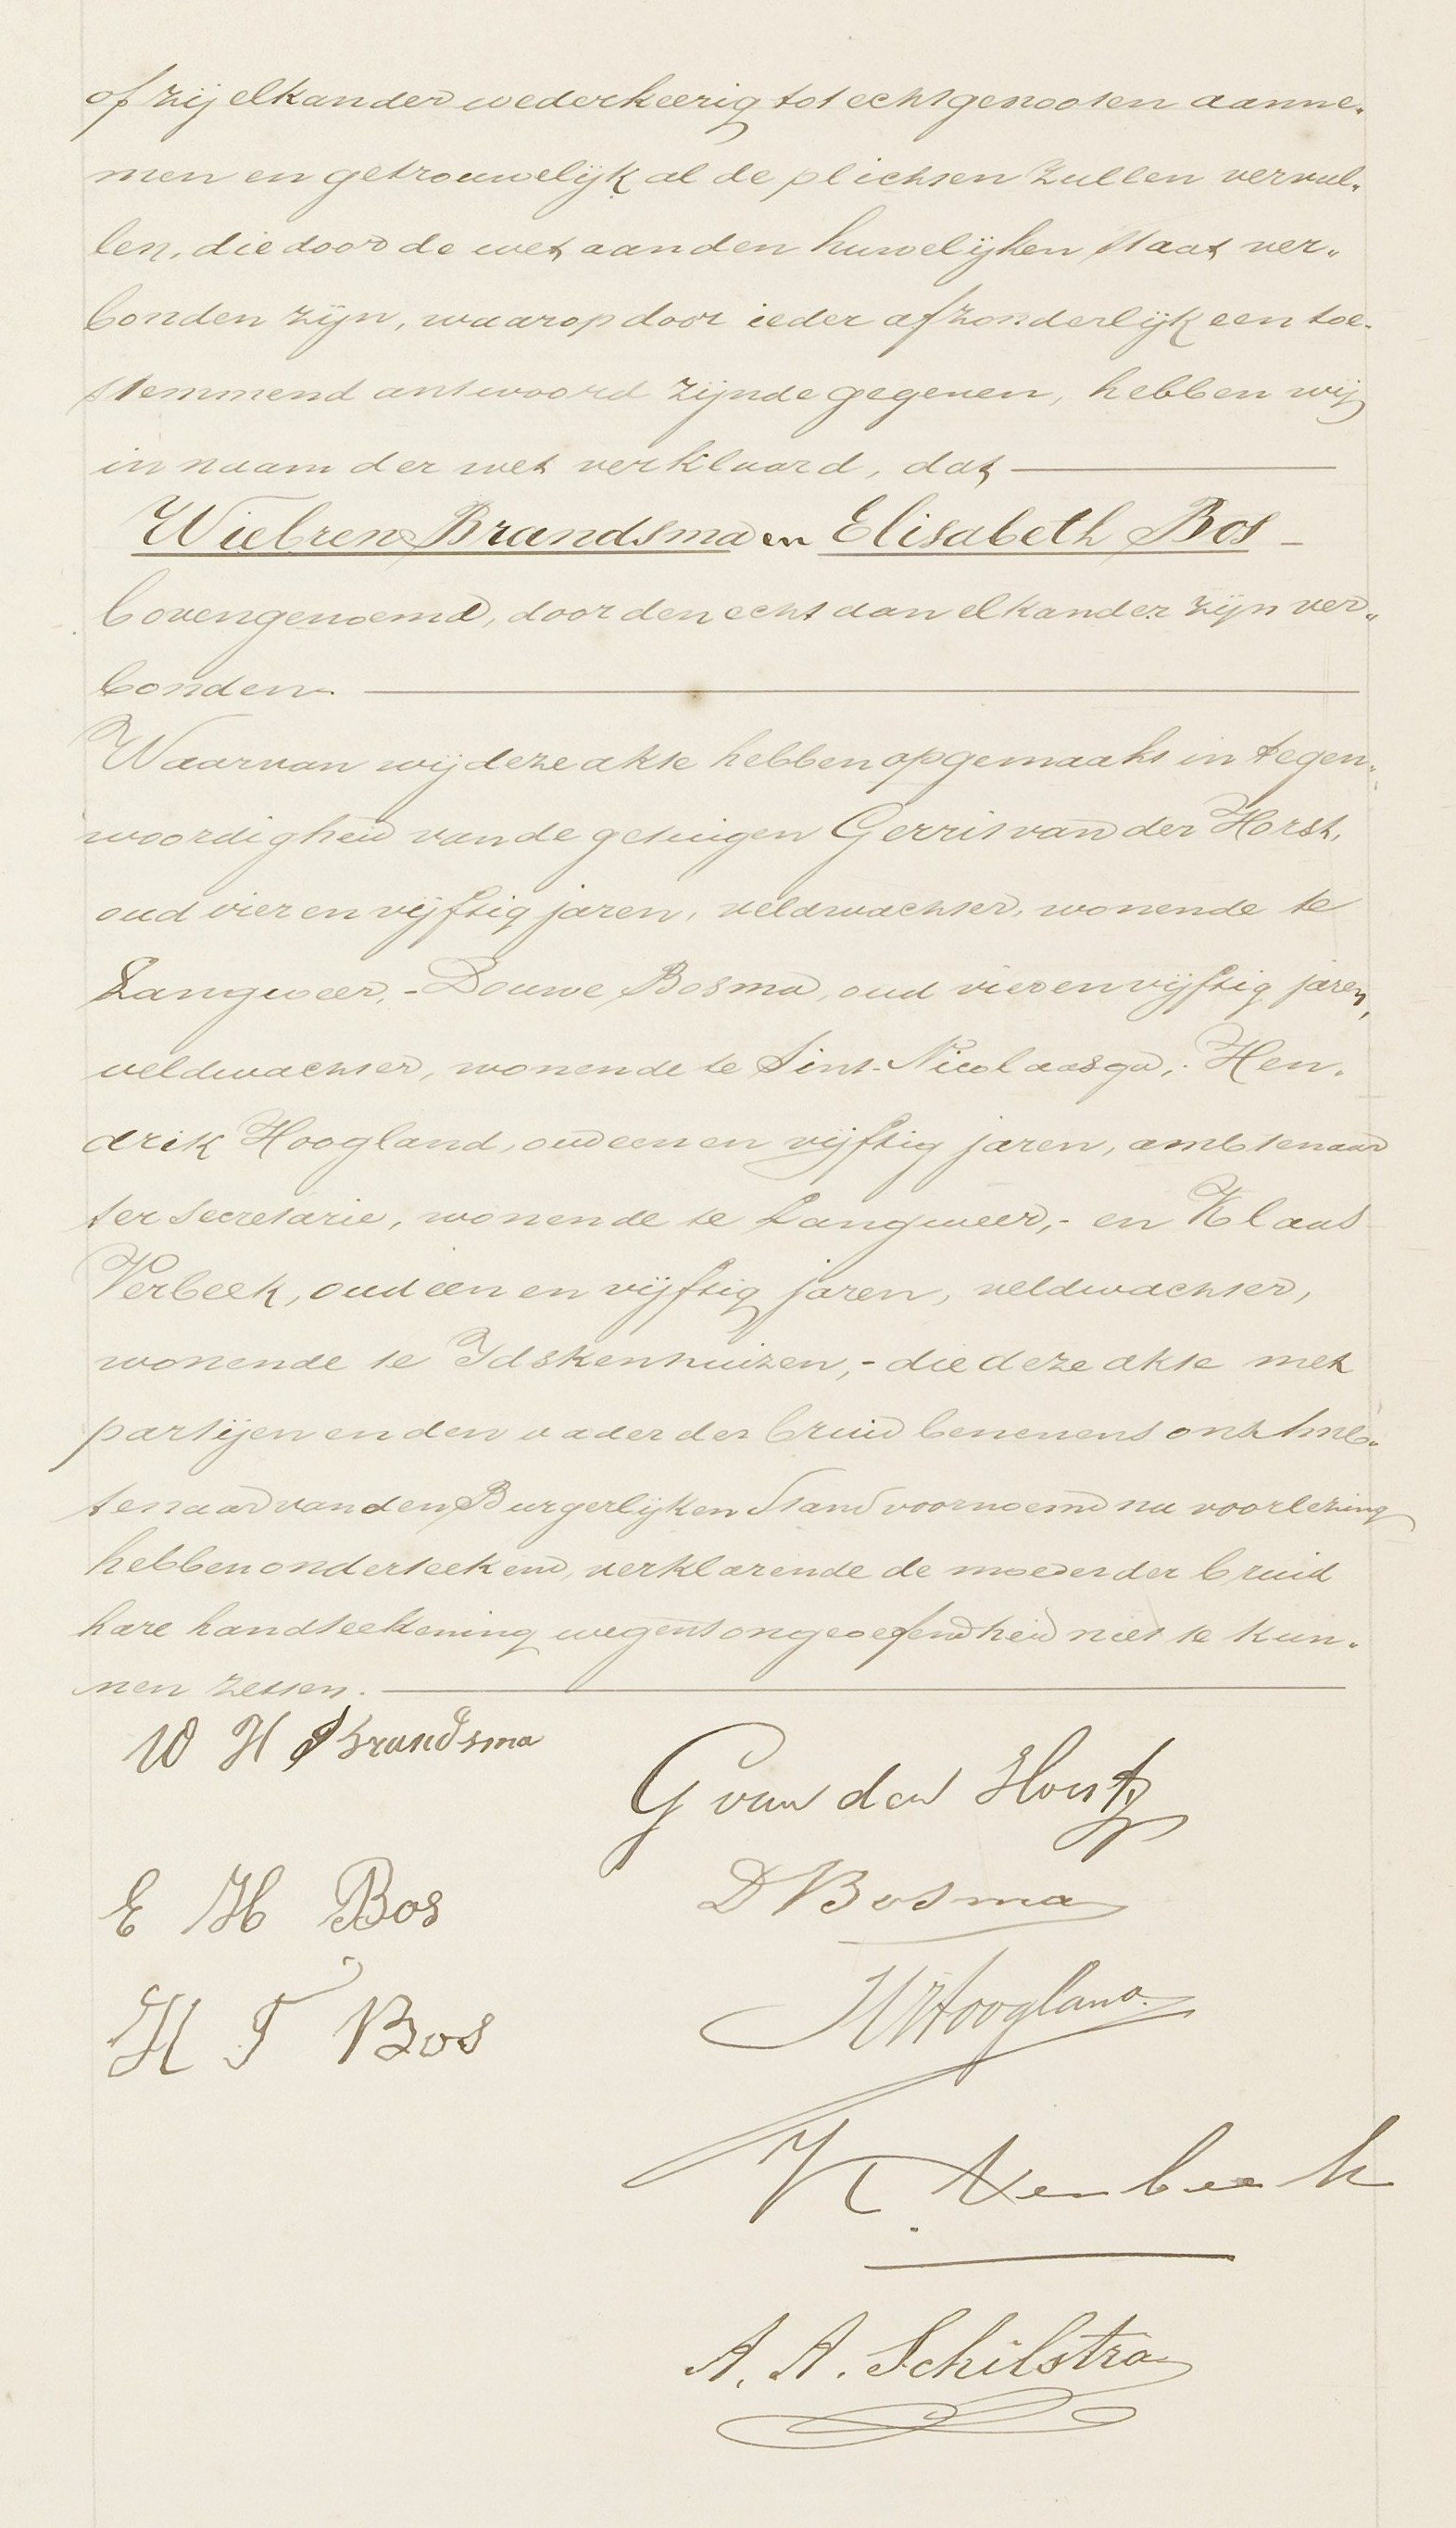 of zij elkander wederkeerig tot echtgenooten aanne-
men en getrouwelijk al de plichten zullen vervul-
len, die door de wet aan den huwelijken staat ver-
bonden zijn, waarop door ieder afzonderlijk een toe-
stemmend antwoord zijnde gegeven, hebben wij
in naam der wet verklaard, dat
Wiebren Brandsma en Elisabeth Bos -
bovengenoemd, door den echt aan elkander zijn ver-
bonden.
Waarvan wij deze akte hebben opgemaakt in tegen-
woordigheid van de getuigen Gerrit van der Horst,
oud vier en vijftig jaren, veldwachter, wonende te
Langweer, - Douwe Bosma, oud vier en vijftig jaren,
veldwachter, wonende te Sint-Nicolaasga, - Hen-
drik Hoogland, oud een en vijftig jaren, ambtenaar
ter secretarie, wonende te Langweer, - en Klaas
Verbeek, oud een en vijftig jaren, veldwachter,
wonende te Idskenhuizen, - die deze akte met
partijen en den vader der bruid benevens ons Amb-
tenaar van den Burgerlijken Stand voornoemd na voorlezing
hebben onderteekend, verklarende de moeder der bruid
hare handteekening wegens ongeoefendheid niet te kun-
nen zetten.
W H Brandsma
G van der Horst
E H Bos
D Bosma
H T Bos
H Hoogland
K Verbeek
A. A. Schilstra